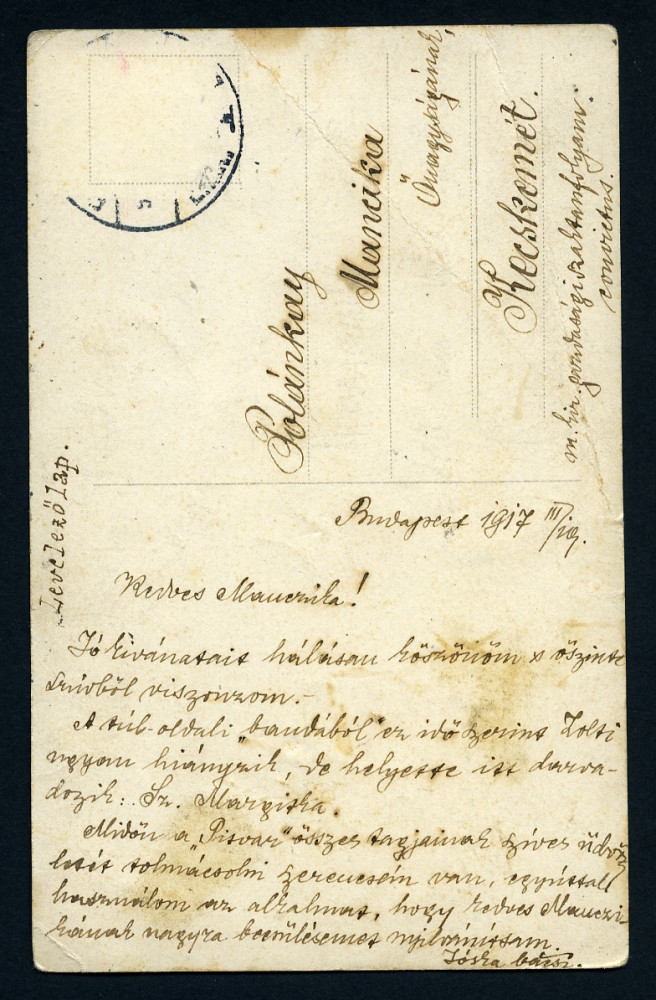 Levelező lap.
Polánkay
Mancika
Őnagyságának,
Kecskemét.
m. kir. gazdasági szaktanfolyam.
convictus.
Budapest 1917 III/19.
Kedves Manczika!
Jó kivánatait hálásan köszönöm s őszinte
szívből viszonzom.-
A túl-oldali „bandából" ez idő szerint Zolti
ugyan hiányzik, de helyette itt darva-
dozik: Sz. Margitka.
Midőn a „Pisvar" összes tagjainak szíves üdvöz
letét tolmácsolni szerencsém van, egyúttal
használom az alkalmat, hogy kedves Manczi-
kának nagyra becsülésemet nyilvánítsam.
Jóska bácsi.